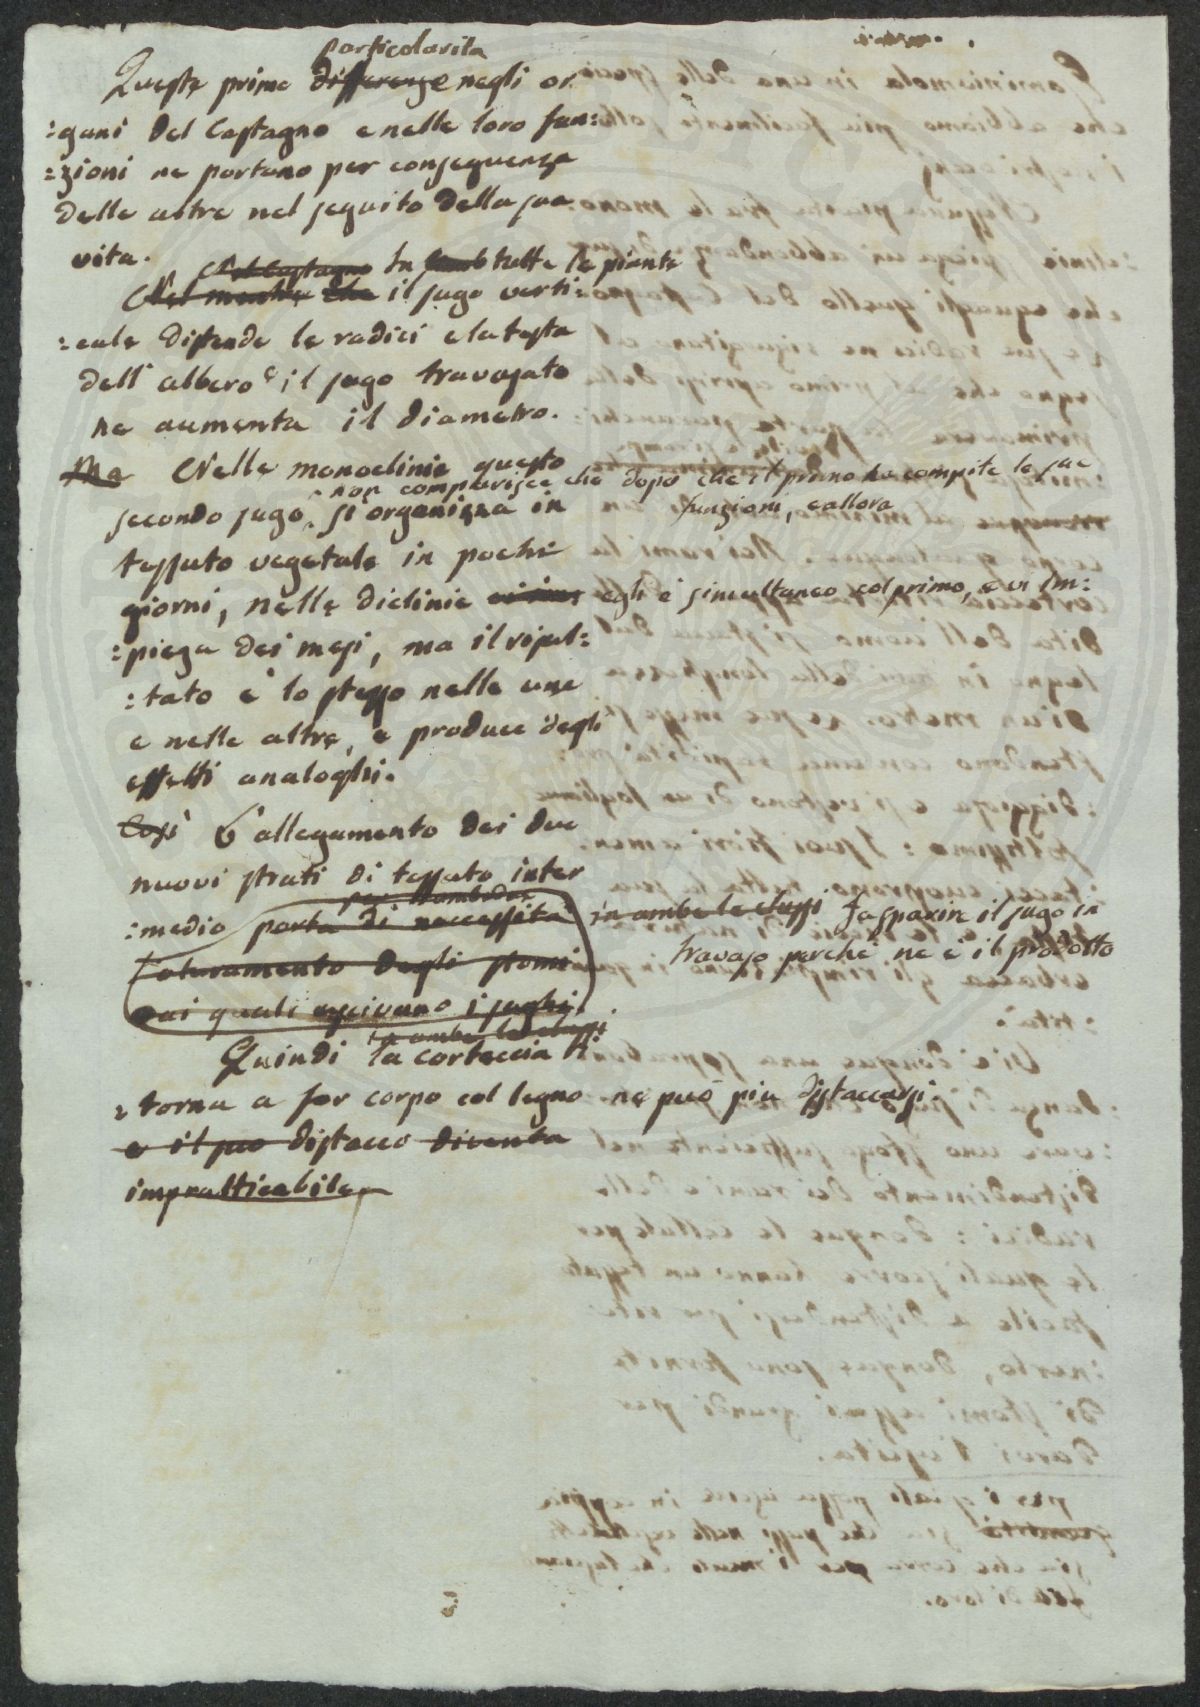 particolarità
Queste prime differenze negli or:
:gani del Castagno e nelle loro fun:
:zioni ne portano per conseguenza
delle altre nel seguito della sua
vita.
Nel Castagno In tutte le piante
Nel mentre che il sugo verti:
:cale distende le radici e la testa
dell'albero e il sugo travasato
ne aumenta il diametro.
Ma Nelle monoclinie questo
non comparisce che dopo che il primo ha compite le sue
funzioni, e allora
secondo sugo si organizza in
tessuto vegetale in pochi
giorni, nelle diclinie egli è simultaneo col primo, e vi Im:
:piega dei mesi, ma il risul:
:tato è lo stesso nelle une
e nelle altre, e produce degli
effetti analoghi.
Così l'allegamento dei due
nuovi strati di tessuto inter
per
:medio porta di necessità in ambe le classi fa sparire il sugo in
travaso perché ne è il prodotto
l'oturamento degli stomi
dai quali uscivano i sughi.
in ambe le classi
Quindi la corteccia ri
:torna a far corpo col legno ne può più distaccarsi.
e il suo distacco diventa
impratticabile